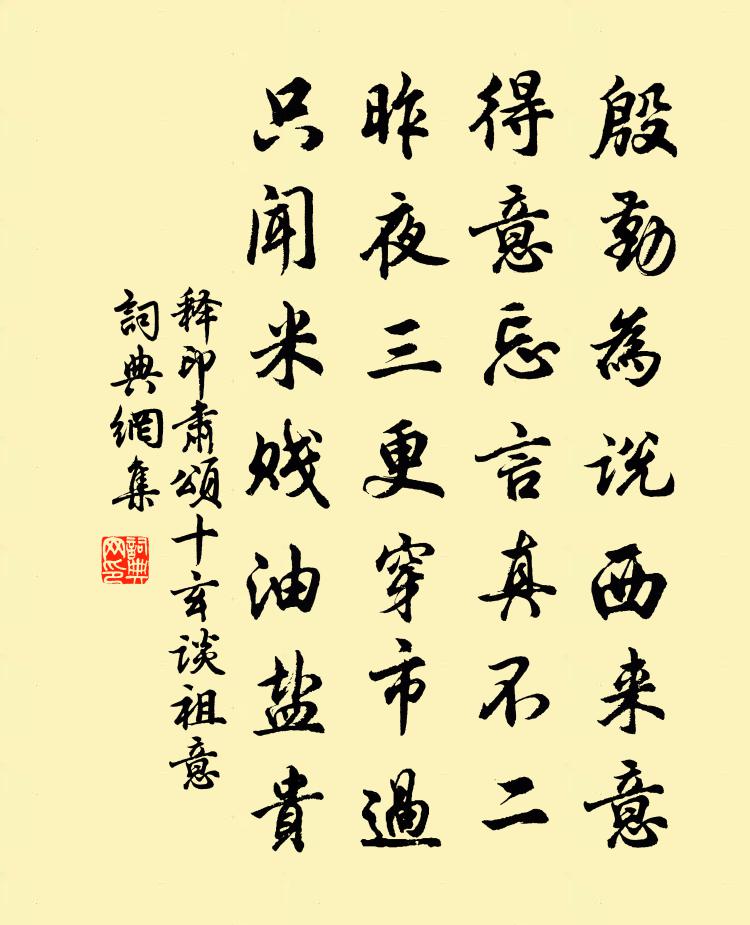 殷勤為説西来意
得意忘言真不二
昨夜三更穿市過
只闻米贱油盐貴
释印肃頌十玄谈祖意
詞典網集
詞典网印